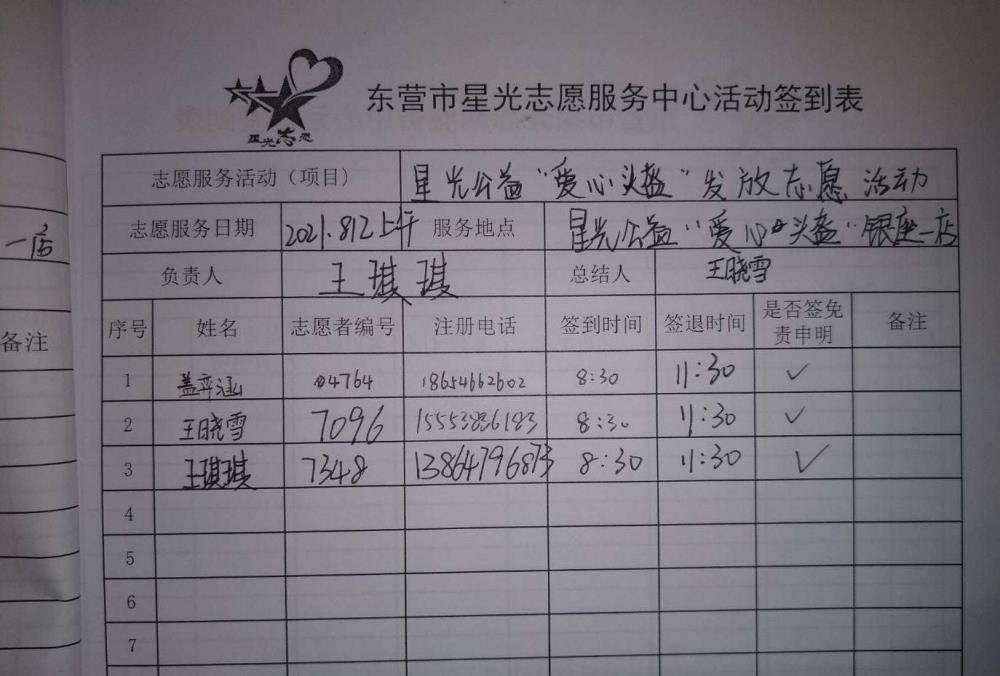 星光志愿
东营市星光志愿服务中心活动签到表
志愿服务活动（项目） 星光公益“爱心头盔”发放志愿活动
志愿服务日期 2021.8.12上午 服务地点 星光公益“爱心头盔”银座一店
负责人 王琪琪 总结人 王晓雪
序号 姓名 志愿者编号 注册电话 签到时间 签退时间 是否签免责申明 备注
1 盖弈涵 04764 18654662602 8:30 11:30 ✓
2 王晓雪 7096 15553836183 8:30 11:30 ✓
3 王琪琪 7348 13864796873 8:30 11:30 ✓
4
5
6
7
一店
备注